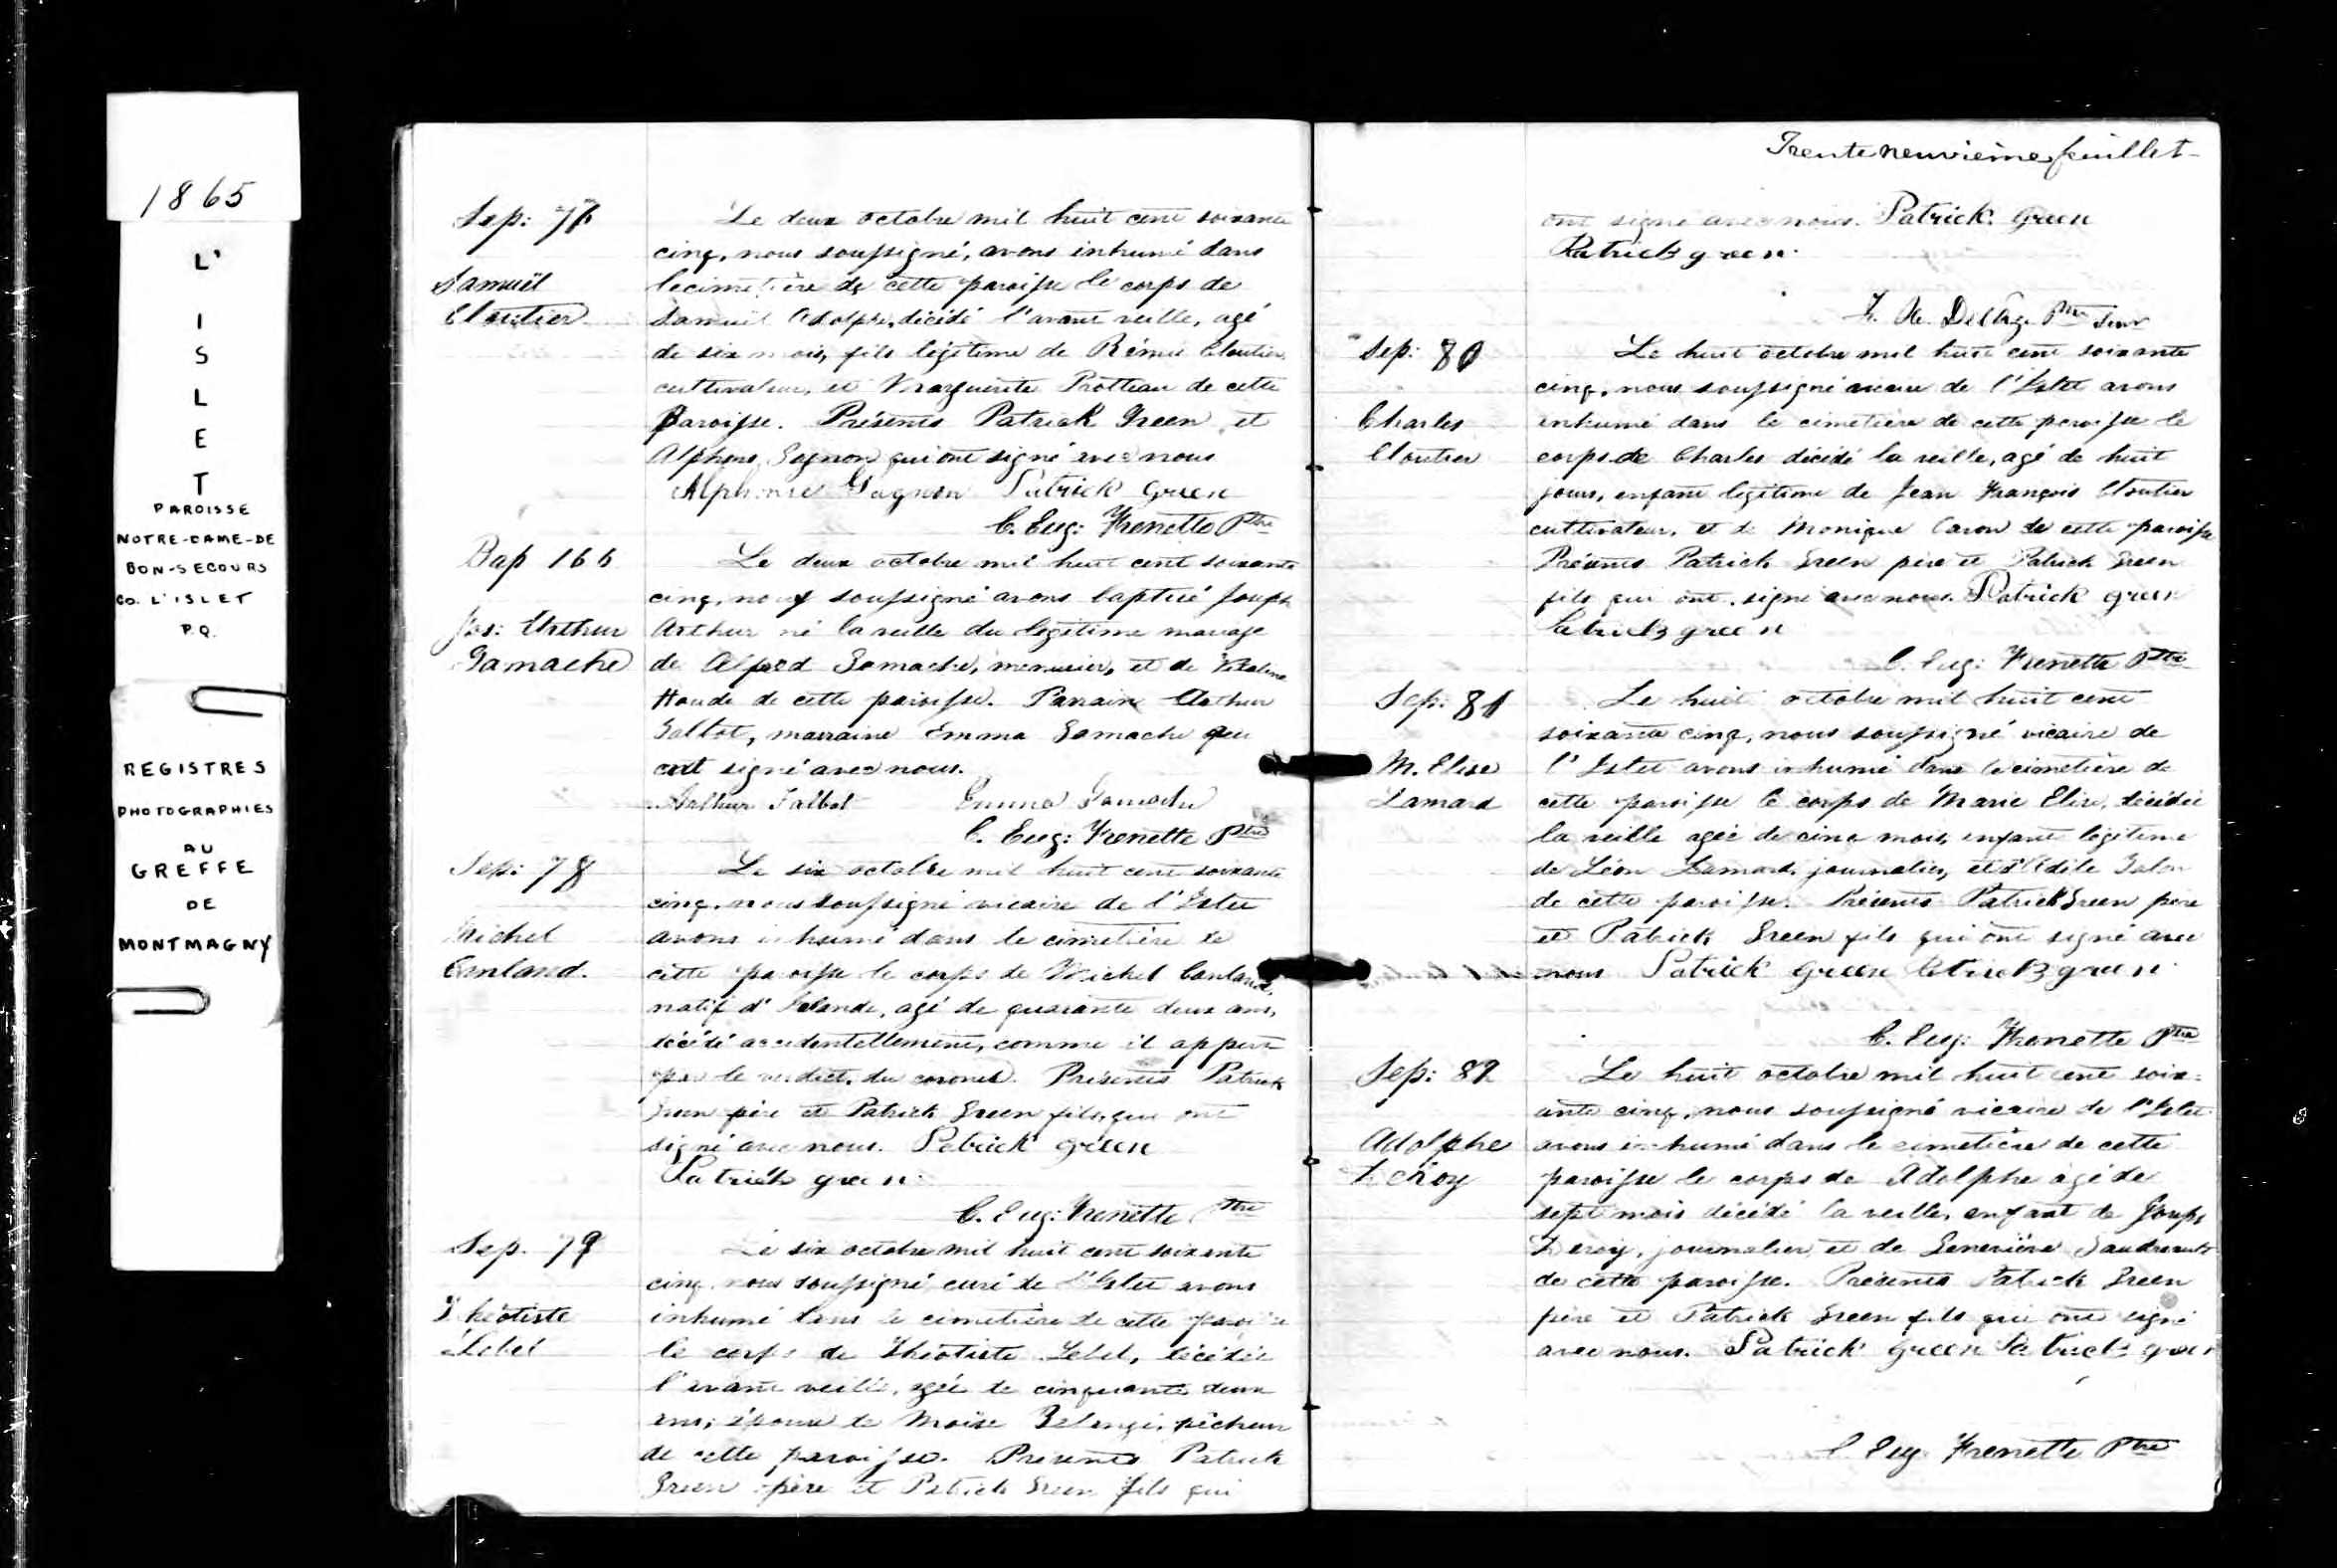 1865
L'
I
S
L
E
T
PAROISSE
NOTRE-DAME-DE
BON-SECOURS
CO. L'ISLET
P.Q.
REGISTRES
PHOTOGRAPHIES
AU
GREFFE
DE
MONTMAGNY
Sep: 76
Samuël
Cloutier
Le deux octobre mil huit cent soixante
cinq, nous soussigné, avons inhumé dans
le cimetière de cette paroisse le corps de
Samuël Adolphe, décédé l'avant veille, agé
de six mois, fils légitime de Rémie Cloutier,
cultivateur, et Marguerite Protteau de cette
Paroisse. Présents Patrick Green et
Alphonse Gagnon qui ont signé avec nous
Alphonse Gagnon Patrick Green
C. Eug: Frenette Ptre
Bap 166
Jos: Arthur
Gamache
Le deux octobre mil huit cent soixante
cinq, nous soussigné avons baptisé Joseph
Arthur né la veille du légitime mariage
de Alfred Gamache, menuisier, et de
Houde de cette paroisse. Parrain Arthur
Talbot, marraine Emma Gamache qui
ont signé avec nous.
Arthur Talbot Emma Gamache
C. Eug: Frenette Ptre
Sep: 78
Michel
Canland.
Le six octobre mil huit cent soixante
cinq, nous soussigné vicaire de l'Islet
avons inhumé dans le cimetière de
cette paroisse le corps de Michel Canland,
natif d'Irlande, agé de quarante deux ans,
décédé accidentellement, comme il appert
par le verdict du coroner. Présents Patrick
Green père et Patrick Green fils, qui ont
signé avec nous. Patrick green
Patrick green
C. Eug: Frenette Ptre
Sep. 79
Théotiste
Lebel
Le six octobre mil huit cent soixante
cinq nous soussigné, curé de l'Islet avons
inhumé dans le cimetière de cette paroisse
le corps de Théotiste Lebel, décédée
l'avant veille, agée de cinquante deux
ans, épouse de Moïse Belanger, pêcheur
de cette paroisse. Présents Patrick
Green père et Patrick Green fils qui
Trente neuvième feuillet
ont signé avec nous. Patrick Green
Patrick green
F. X. Delâge Ptre
Sep: 80
Charles
Cloutier
Le huit octobre mil huit cent soixante
cinq, nous soussigné vicaire de l'Islet avons
inhumé dans le cimetière de cette paroisse le
corps de Charles décédé la veille, agé de huit
jours, enfant légitime de Jean François Cloutier
cultivateur, et de Monique Caron de cette paroisse
Présents Patrick Green père et Patrick Green
fils qui ont signé avec nous. Patrick green
Patrick green
C. Eug: Frenette Ptre
Sep: 81
M. Elise
Lamard
Le huit octobre mil huit cent
soixante cinq, nous soussigné vicaire de
l'Islet avons inhumé dans le cimetière de
cette paroisse le corps de Marie Elise, décédée
la veille agée de cinq mois, enfant légitime
de Léon Lamard, journalier, et d'Adèle
de cette paroisse. Présents Patrick Green père
et Patrick Green fils qui ont signé avec
nous Patrick green Patrick green
C. Eug: Frenette Ptre
Sep: 82
Adolphe
Leroy
Le huit octobre mil huit cent soix-
ante cinq, nous soussigné vicaire de l'Islet
avons inhumé dans le cimetière de cette
paroisse le corps de Adolphe agé de
sept mois décédé la veille, enfant de Joseph
Leroy, journalier, et de Geneviève Gaudreault
de cette paroisse. Présents Patrick Green
père et Patrick Green fils qui ont signé
avec nous. Patrick green Patrick green
C. Eug. Frenette Ptre